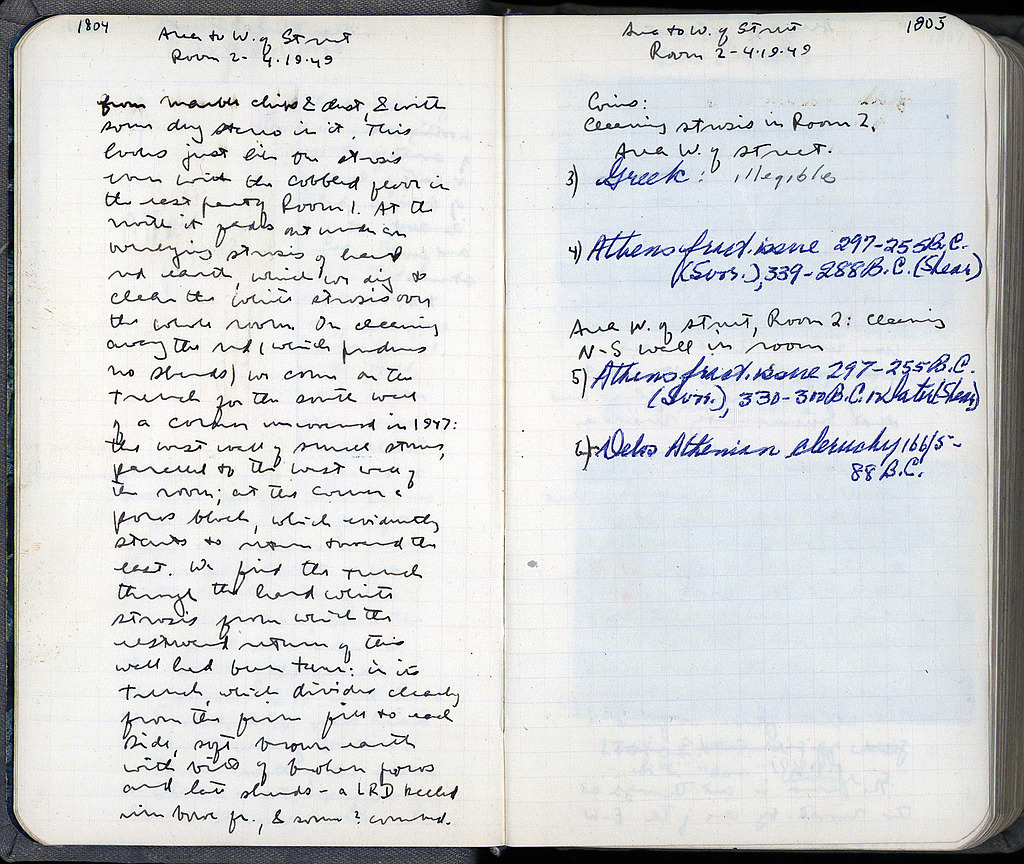 1804
Area to W. of Street
Room 2 - 4.19.49
from marble chips & dust, & with
some dug stereo in it. This
looks just like the strosis
even with the cobbled floor in
the west part of Room 1. At the
north it fades out under an
overlying strosis of hard
red earth, which we dig to
clear the white strosis over
the whole room. On cleaning
away the red (which produces
no sherds) we come on the
trench for the south wall
of a corner uncovered in 1947:
the west wall of small stones,
parallel to the west wall of
the room; at the corner a
poros block, which evidently
starts to return toward the
east. We find the trench
through the hard white
strosis from which the
westward return of this
wall had been taken: in its
trench, which divides clearly
from the firm fill to each
side, soft brown earth
with bits of broken poros
and late sherds - a LRD keeled
rim bowl fr., & some ? combed.
1805
Area to W. of Street
Room 2 - 4.19.49
Coins:
Cleaning strosis in Room 2,
Area W. of street.
3) Greek: illegible
4) Athens fract. issue 297-255 B.C.
(Svor.), 339-288 B.C. (Shear)
Area W. of street, Room 2: cleaning
N-S wall in room
5) Athens fract. issue 297-255 B.C.
(Svor.), 330-300 B.C. or later (Shear)
6) Delos Athenian cleruchy 166/5-
88 B.C.